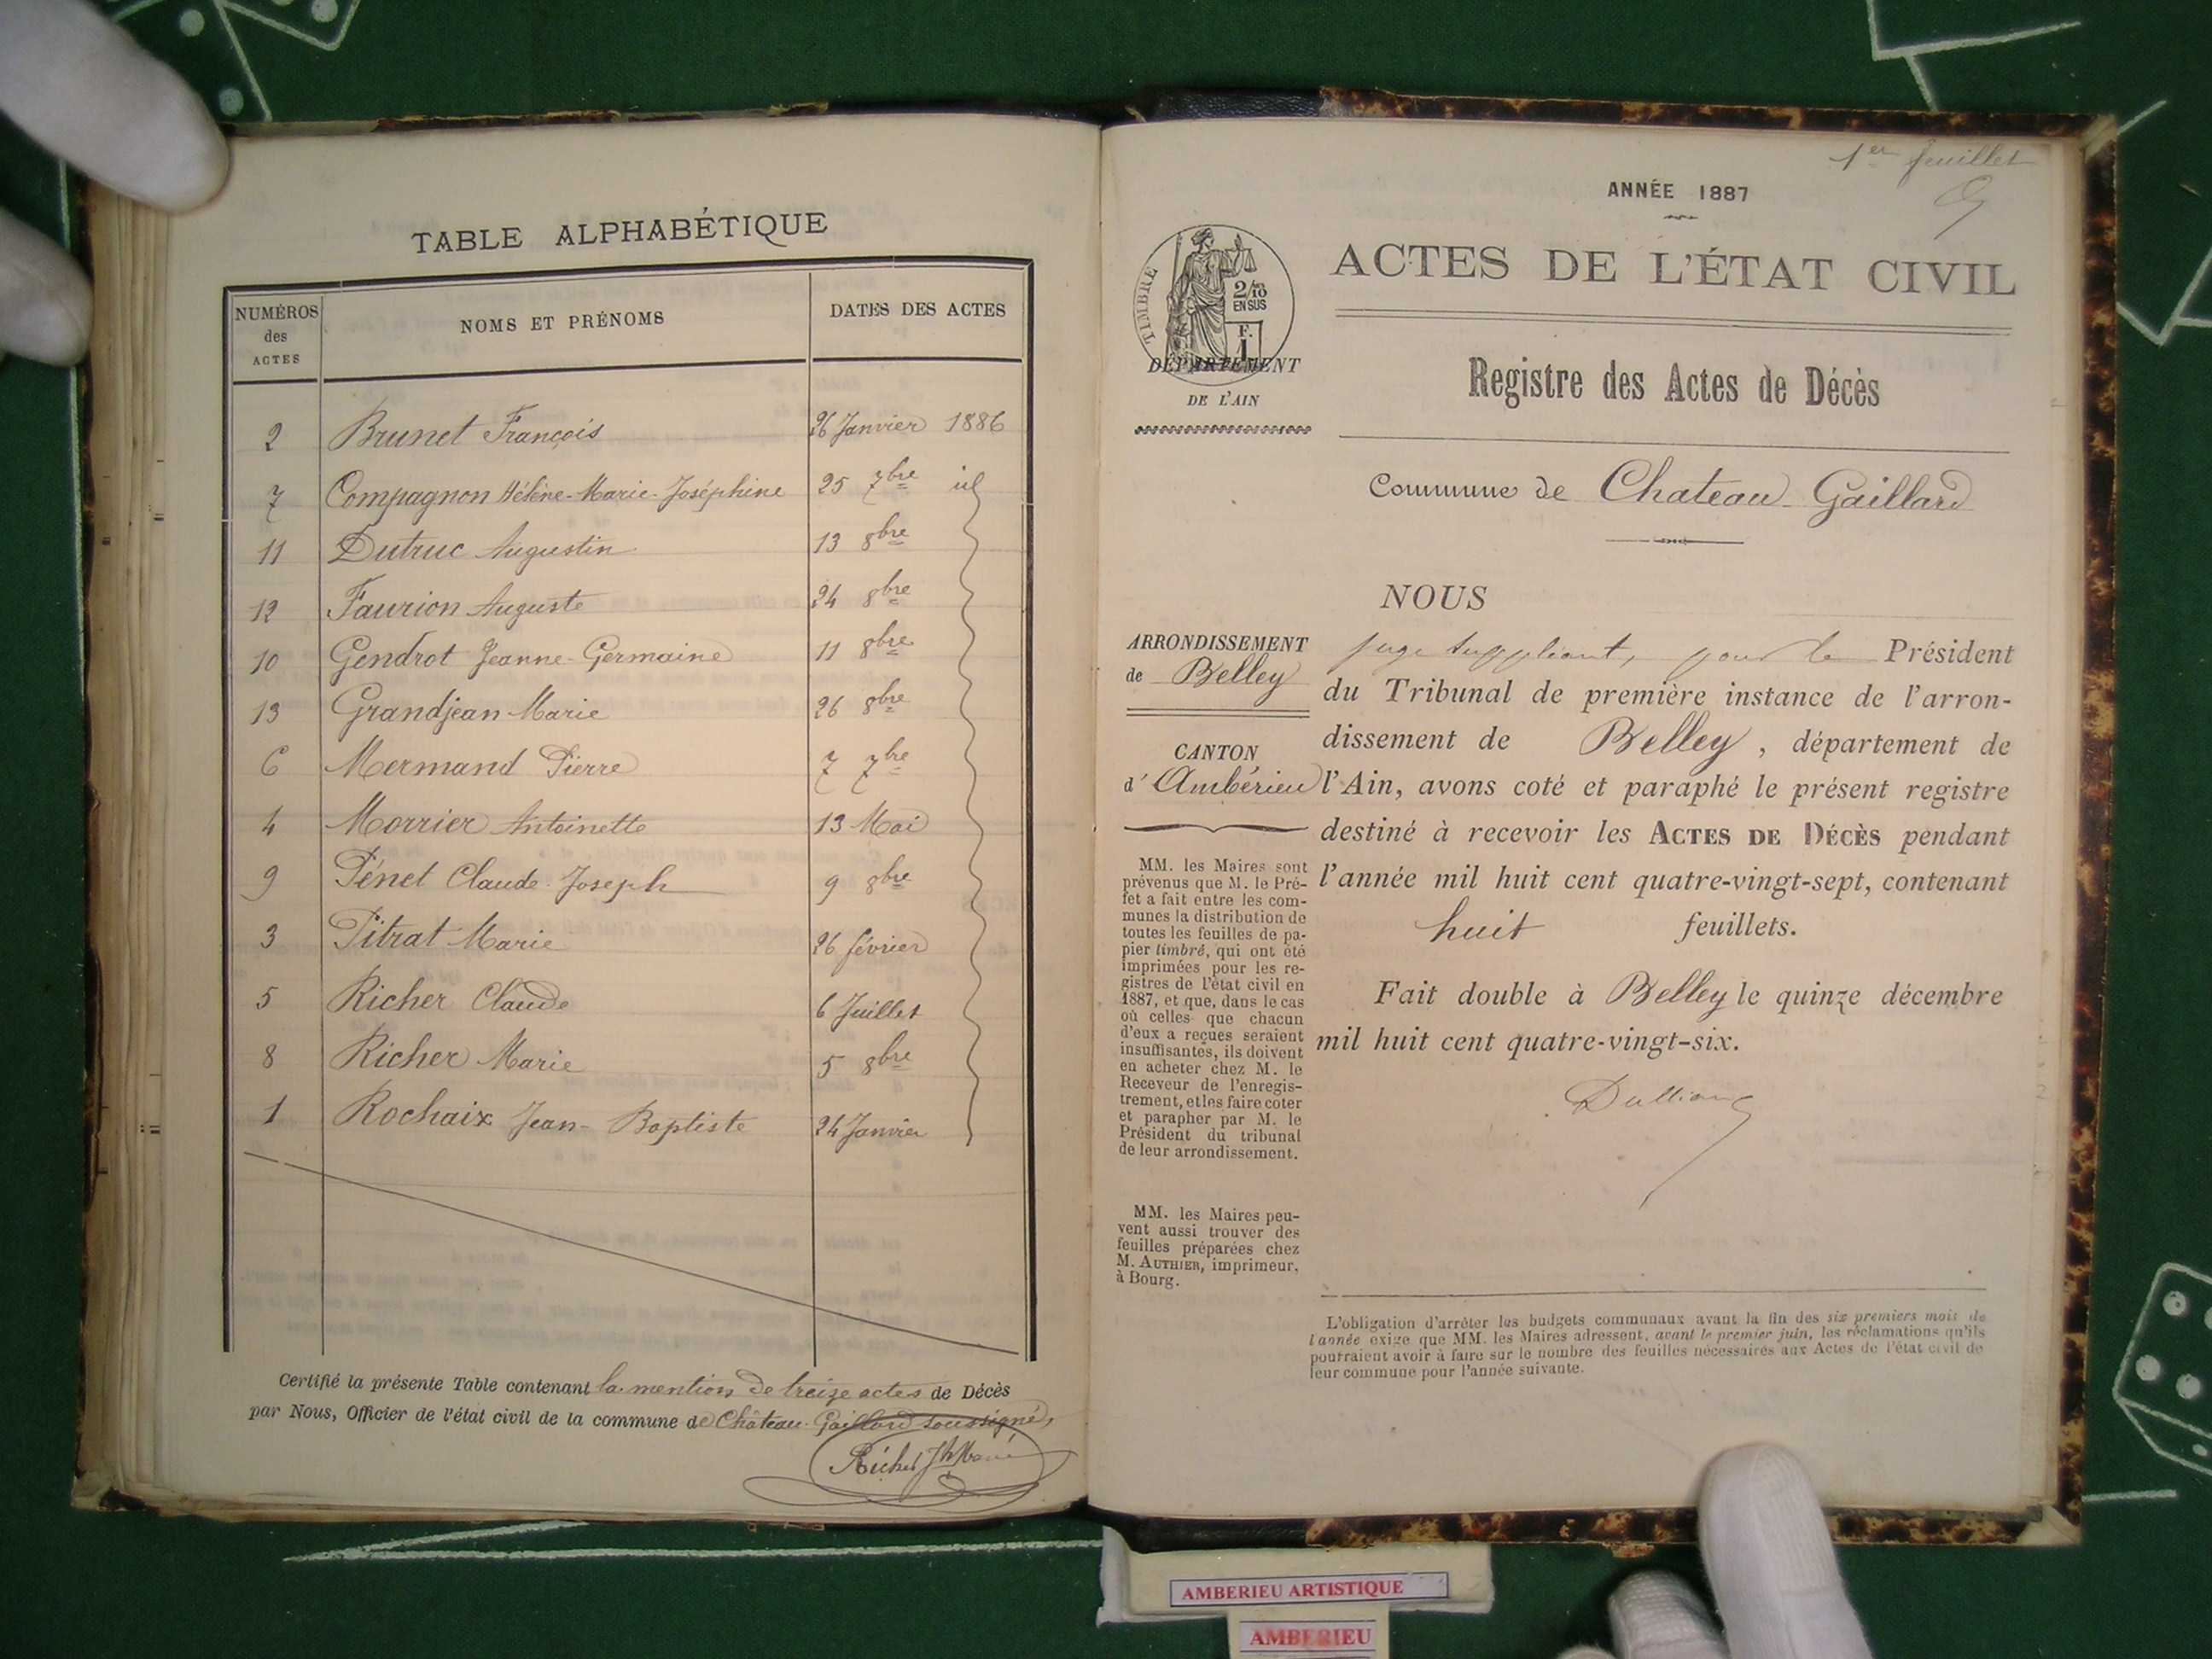 TABLE ALPHABÉTIQUE
NUMÉROS des ACTES NOMS ET PRÉNOMS DATES DES ACTES
2 Brunet François 26 Janvier 1886
7 Compagnon Hélène-Marie-Joséphine 25 7bre id
11 Dutruc Augustin 13 8bre
12 Faurion Auguste 24 8bre
10 Gendrot Jeanne-Germaine 11 8bre
13 Grandjean Marie 26 8bre
6 Mermand Pierre 7 7bre
4 Morrier Antoinette 13 Mai
9 Pénet Claude-Joseph 9 8bre
3 Pitrat Marie 26 février
5 Richer Claude 6 Juillet
8 Richer Marie 5 8bre
1 Rochaix Jean-Baptiste 24 Janvier
Certifié la présente Table contenant la mention de treize actes de Décès
par Nous, Officier de l'état civil de la commune de Château-Gaillard soussigné,
1er feuillet
ANNÉE 1887
TIMBRE
2/10
EN SUS
F.
1
ACTES DE L'ÉTAT CIVIL
DÉPARTEMENT
DE L'AIN
Registre des Actes de Décès
Commune de Chateau-Gaillard
ARRONDISSEMENT
de Belley
CANTON
d'Ambérieu
MM. les Maires sont
prévenus que M. le Pré-
fet a fait entre les com-
munes la distribution de
toutes les feuilles de pa-
pier timbré, qui ont été
imprimées pour les re-
gistres de l'état civil en
1887, et que, dans le cas
où celles que chacun
d'eux a reçues seraient
insuffisantes, ils doivent
en acheter chez M. le
Receveur de l'enregis-
trement, et les faire coter
et parapher par M. le
Président du tribunal
de leur arrondissement.
MM. les Maires peu-
vent aussi trouver des
feuilles préparées chez
M. AUTHIER, imprimeur,
à Bourg.
NOUS
juge suppléant, pour le Président
du Tribunal de première instance de l'arron-
dissement de Belley, département de
l'Ain, avons coté et paraphé le présent registre
destiné à recevoir les ACTES DE DÉCÈS pendant
l'année mil huit cent quatre-vingt-sept, contenant
huit feuillets.
Fait double à Belley le quinze décembre
mil huit cent quatre-vingt-six.
L'obligation d'arrêter les budgets communaux avant la fin des six premiers mois de
l'année exige que MM. les Maires adressent, avant le premier juin, les réclamations qu'ils
pourraient avoir à faire sur le nombre des feuilles nécessaires aux Actes de l'état civil de
leur commune pour l'année suivante.
AMBERIEU ARTISTIQUE
AMBERIEU